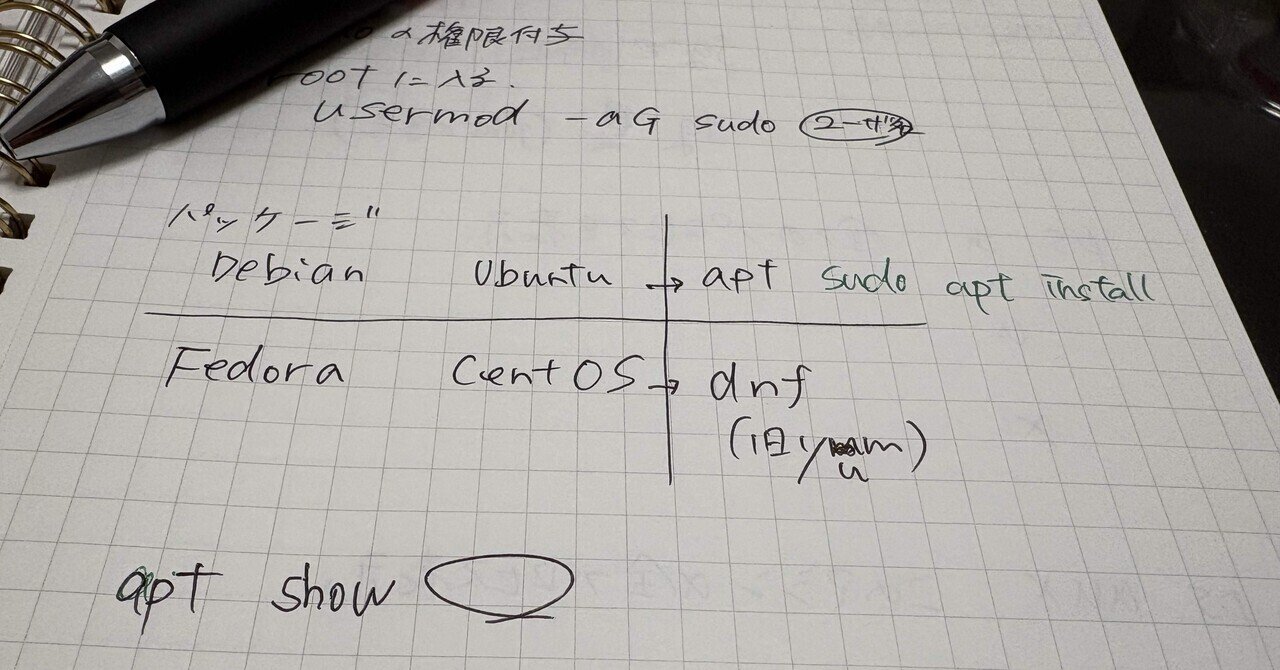 の権限付与
rootに入る.
usermod -aG sudo ユーザ名
パッケージ
Debian Ubuntu → apt sudo apt install
Fedora CentOS → dnf
(旧yum)
apt show